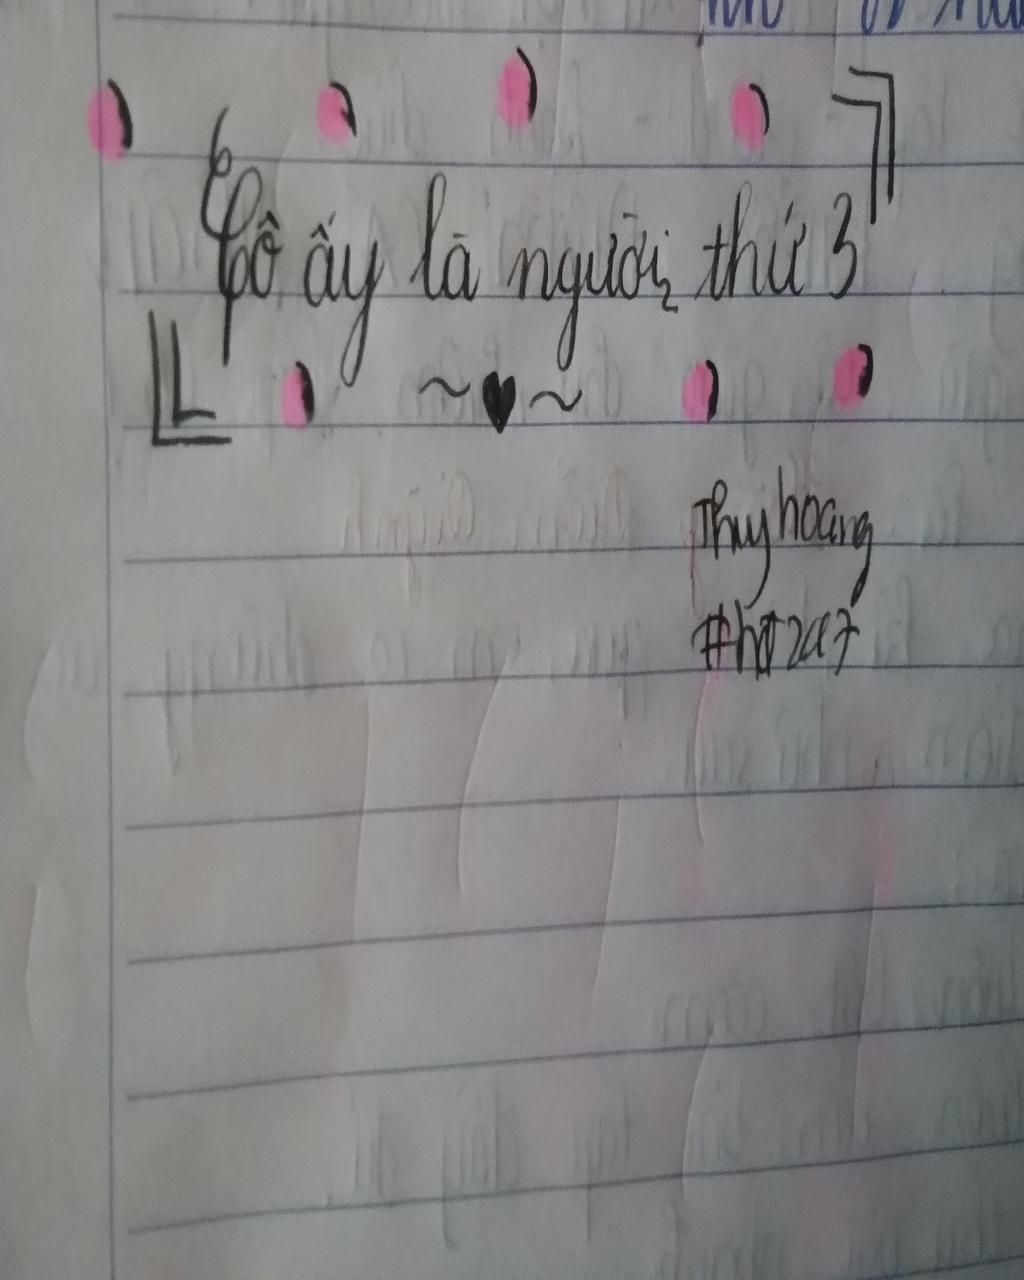 Cô ấy là người thứ 3
~♥~
Thuy hoang